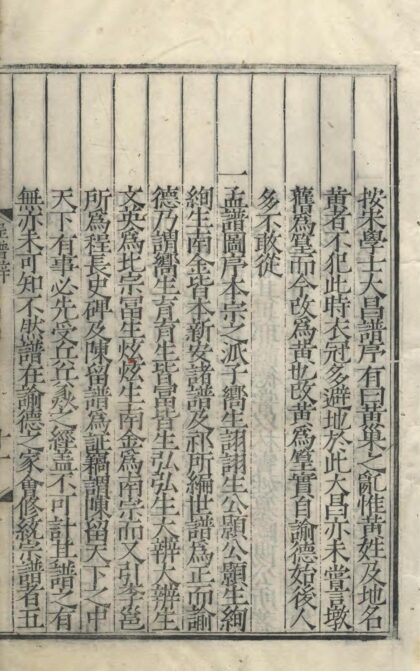 按朱學士大昌譜序有曰黃巢之亂惟黃姓及地名
黃者不犯此時衣冠多避地於此大昌亦未嘗言墩
舊爲篁而今改爲黃也改黃爲篁實自諭德始後人
多不敢從
一孟譜圖序本宗之派子嚮生詡詡生公顯公顯生絢
絢生南金皆本新安諸譜及祁所編世譜爲正而諭
德乃謂嚮生育育生皆冨皆生弘弘生大辨大辨生
文英爲北宗冨生炫炫生南金爲南宗而又引李邕
所爲程長史碑及陳留譜爲証竊謂陳留天下之中
天下有事必先受兵兵燹之經蓋不可計其譜之有
無亦未可知不然譜在諭德之家曾修統宗譜者五
譜辨